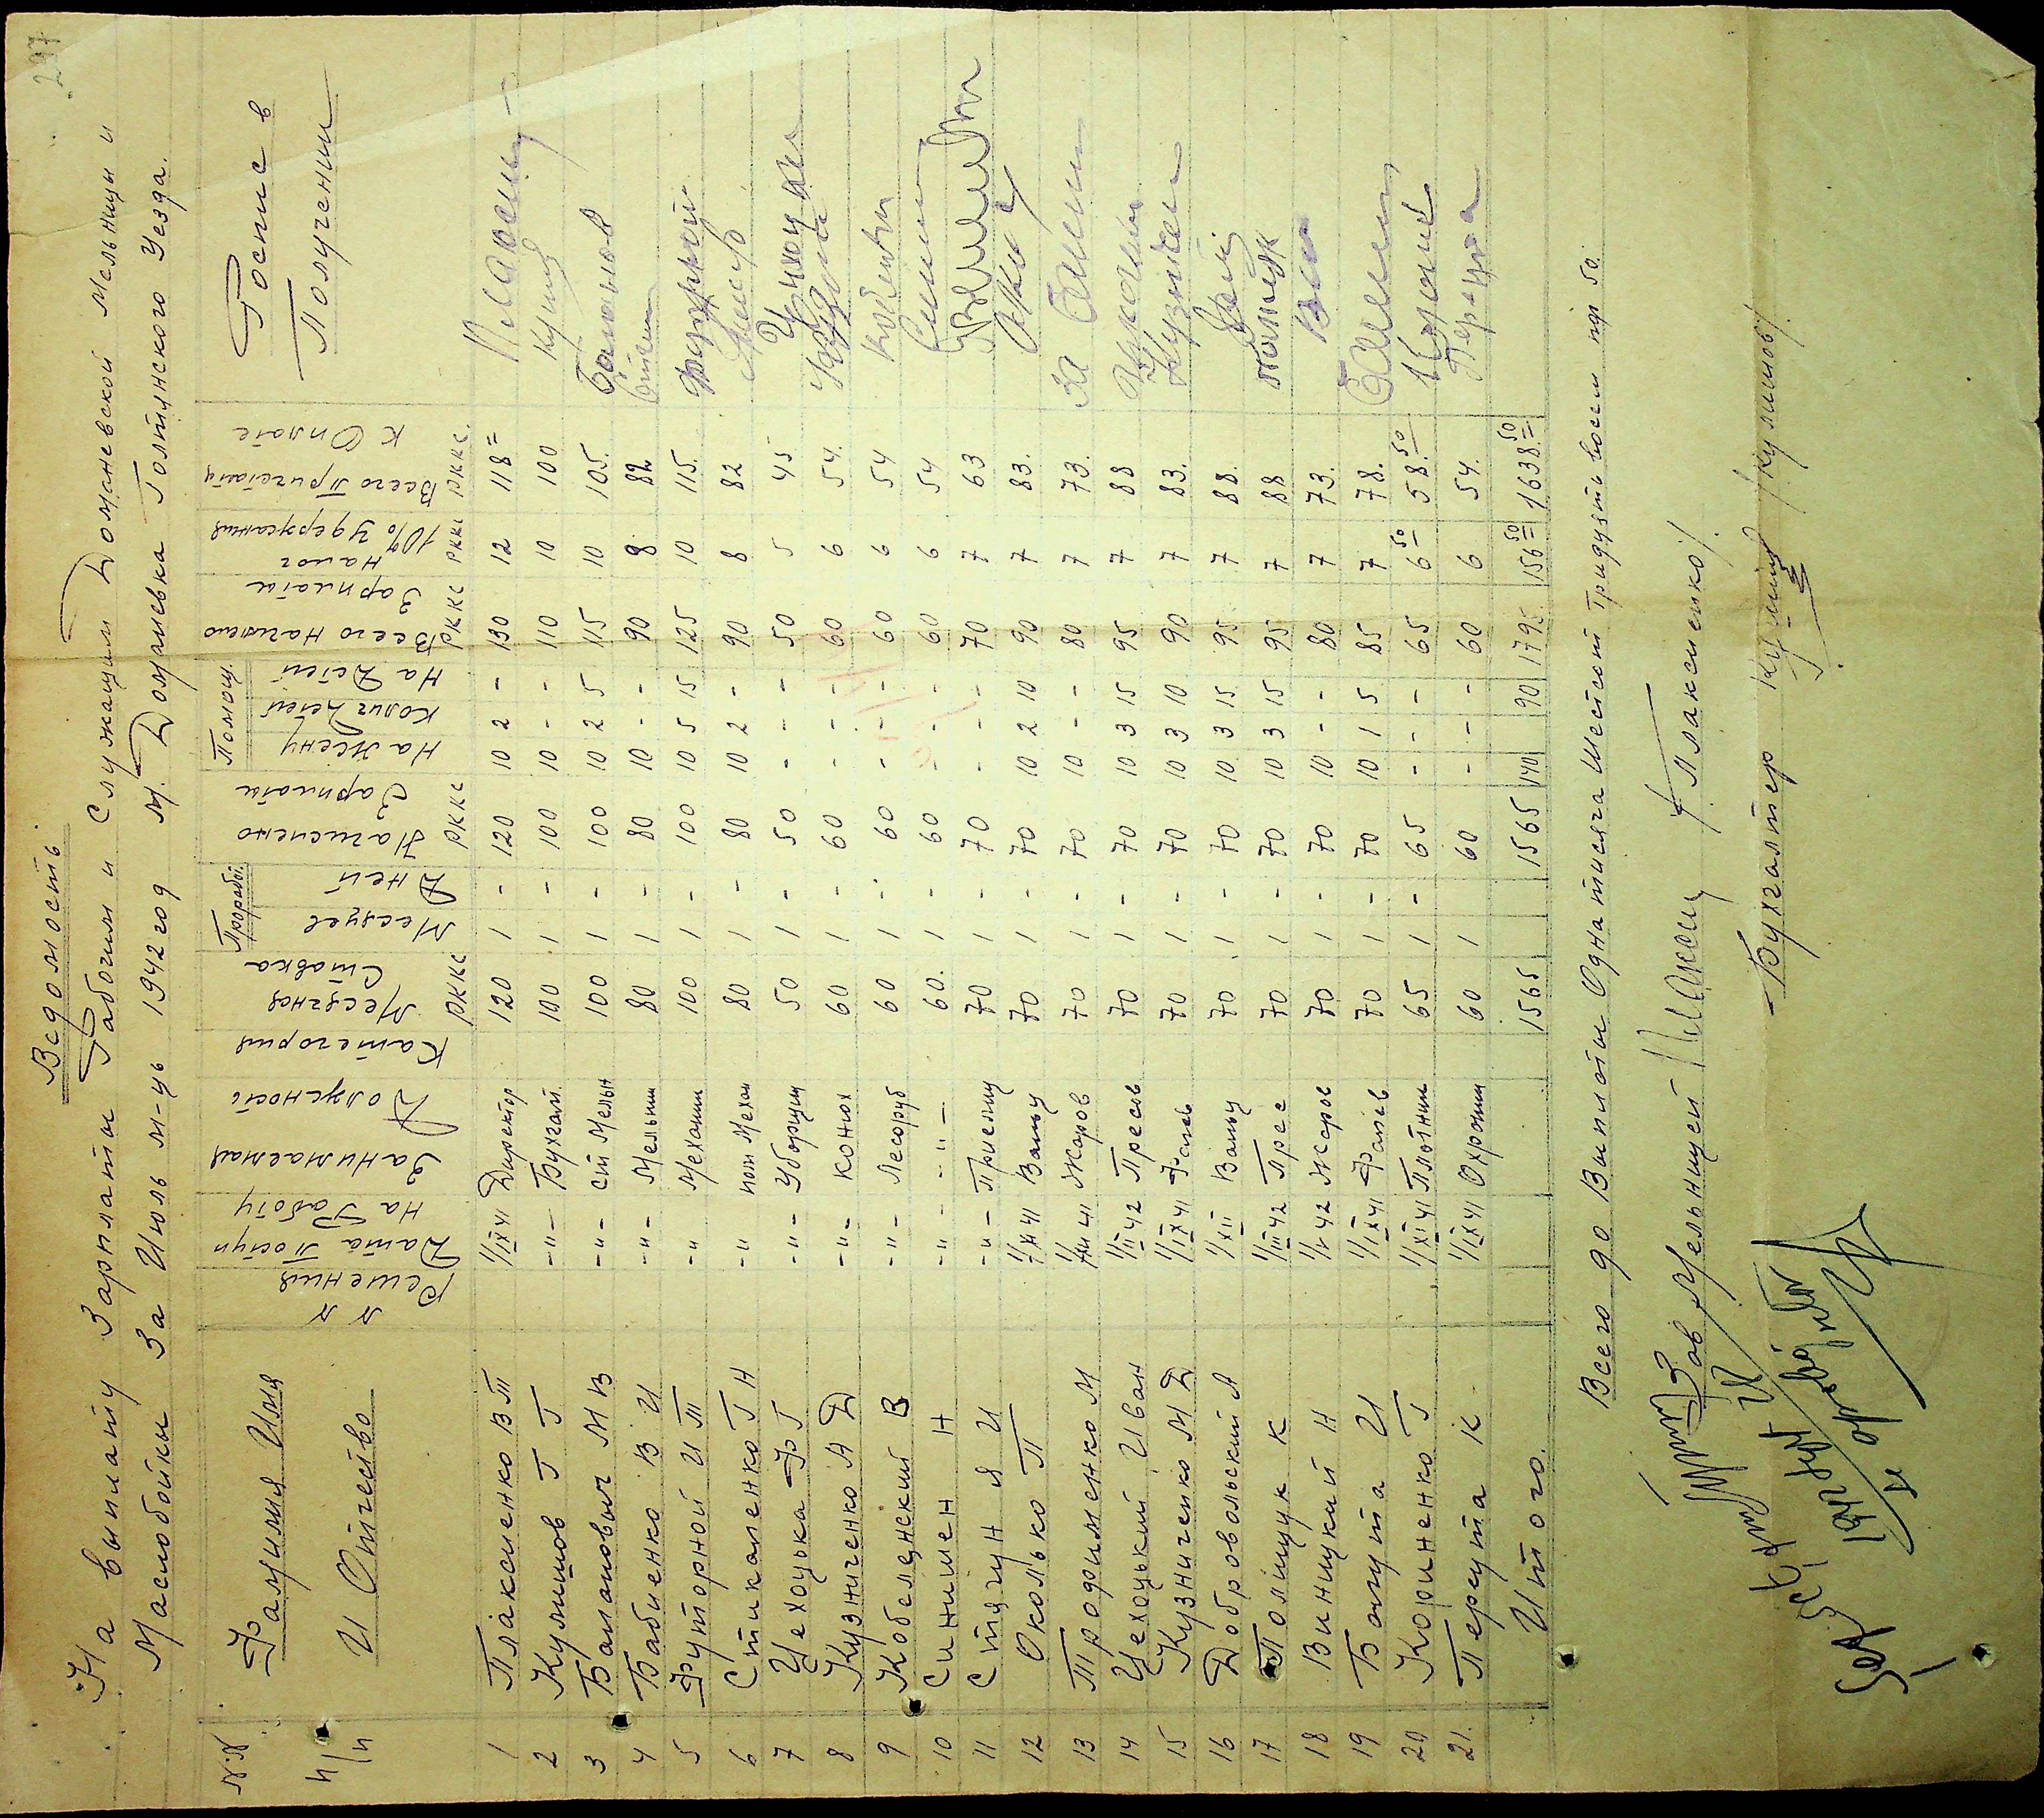 297
Ведомость
На выплату Зарплаты Рабочим и Служащим Доманевской Мельницы и
Маслобойки За Июль м-ць 1942 год м. Доманевка Голтянского Уезда.
№№ п/п Фамилия Имя и Отчество №№ Решения Дата Поступ на Работу Занимаемая Должность Категория Месячная Ставка РККС Проработ. Месяцев Дней Начислено Зарплаты РККС Помощ. На Жену Колич Детей На Детей Всего Начислено Зарплаты РККС Налог 10% Удержания РККС Всего Причитаец К Оплате РККС. Роспис в Получении
1 Плаксиенко В П 1/IX 41 Директор 120 1 - 120 10 2 - 130 12 118=
2 Кулишов Г Г -"- Бухгалт. 100 1 - 100 10 - - 110 10 100
3 Балановыч М В -"- Ст Мельн 100 1 - 100 10 2 5 115 10 105.
4 Бабиенко В И -"- Мельник 80 1 - 80 10 - - 90 8 82
5 Футорной И П -" Механик 100 1 - 100 10 5 15 125 10 115.
6 Стикаленко Г Н -" пом Механ 80 1 - 80 10 2 - 90 8 82
7 Цехоцька Ф Г -"- Уборщиц 50 1 - 50 - - - 50 5 45
8 Кузниченко А Д -"- Конюх 60 1 - 60 - - - 60 6 54.
9 Кобелянский В -"- Лесоруб 60 1 - 60 - - - 60 6 54
10 Синишен Н -"- -"- 60. 1 - 60 - - - 60 6 54
11 Стягун Я И -"- Приемщ 70 1 - 70 - - - 70 7 63
12 Околько П 1/XI 41 Вальц 70 1 - 70 10 2 10 90 7 83.
13 Тродименко М 1/XII 41 Жаров 70 1 - 70 10 - - 80 7 73.
14 Цехоцький Иван 1/II 42 Пресов 70 1 - 70 10 3 15 95 7 88
15 Кузниченко М Д 1/IX 41 Фаев 70 1 - 70 10 3 10 90 7 83.
16 Добровольский А 1/XII Вальц 70 1 - 70 10 3 15 95 7 88.
17 Полищук К 1/III 42 Прес 70 1 - 70 10 3 15 95 7 88
18 Виницкий Н 1/V 42 Жаров 70 1 - 70 10 - - 80 7 73.
19 Балута И 1/IX 41 Фаев 70 1 - 70 10 1 5 85 7 78.
20 Кориненко Г 1/XI 41 Плотник 65 1 - 65 - - - 65 6 50 58.50
21. Перута К 1/IX 41 Охроник 60 1 60 - - - 60 6 54.
Итого. 1565 1565 140 90 1795 156 50 1638.50
Всего до Выплоти Одна тисяча Шестсот Тридцять восем пф 50.
Зав Мельницей /Плаксиенко/.
Бухгалтер /Кулишов/.